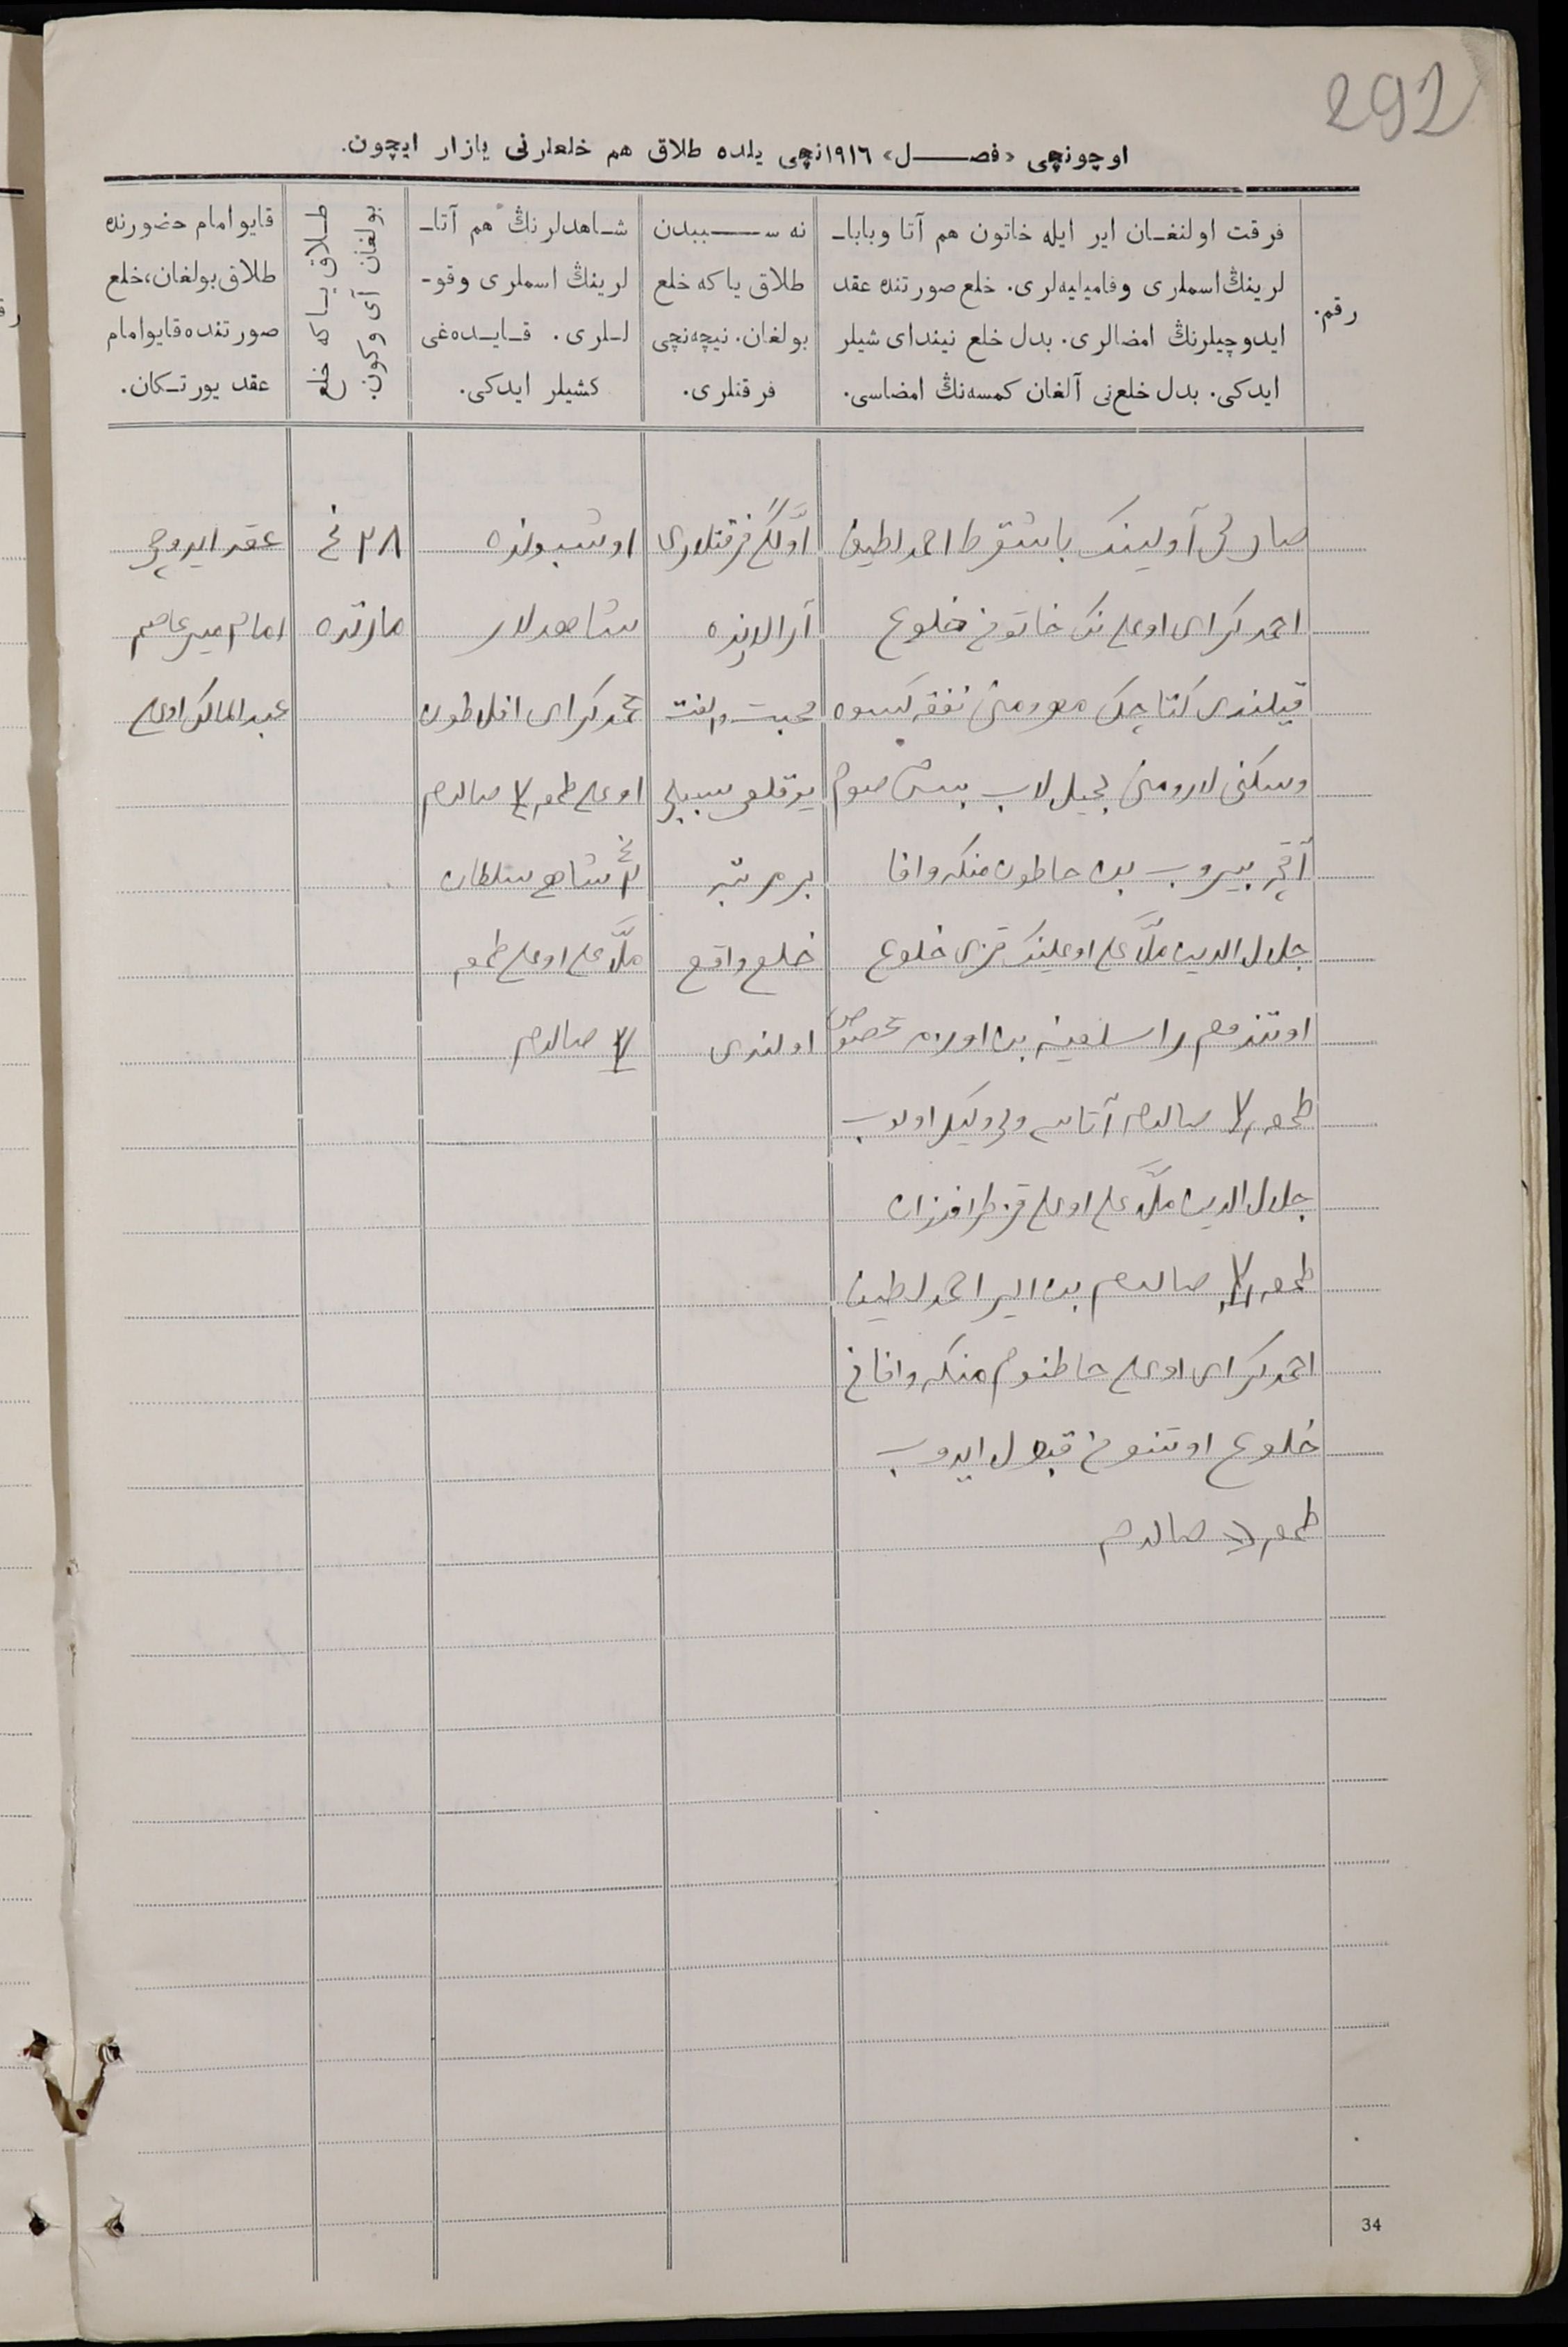 292
اوچونچی «فصـــــل» ۱۹۱٦نچی یلده طلاق هم خلعلرنی یازار ایچون.
رقم.
فرقت اولنغـان ایر ایله خاتون هم آتا وبابا۔
لرینڭ اسملری وفامیلیه‌لری. خلع صورتنده عقد
ایدوچیلرنڭ امضالری. بدل خلع نیندای شیلر
ایدکی. بدل خلع‌نی آلغان کمسه‌نڭ امضاسی.
نه ســـــببدن
طلاق یاکه خلع
بولغان. نیچه‌نچی
فرقتلری.
شـاهدلرنڭ هم آتا۔
لرینڭ اسملری وقو۔
لـلری. قـایـده‌غی
کشیلر ایدکی.
طـلاق یـاکه خلع
بولغان آی وکون
قایو امام حضورنده
طلاق بولغان، خلع
صورتنده قایو امام
عقد یورتـکان.
آولینک باشقرط احمد لطیف
احمد کرای اوغلی نک خاتونی خلوع
قیلندی نفقه کسوه
وسکنی بیش صوم
آقچه بیروب بن
جلال الدین ملّا علی اوغلینک قزی خلوع
اوتندم
طمغه صالدم آتاسی وکیل اولوب
جلال الدین ملّا علی اوغلی
طمغه صالدم بن ایر احمد لطیف
احمد کرای اوغلی خاطنوم
خلوع اوتنونی قبول ایدوب
طمغه صالدم
اوّلگی فرقتلاری
آرالارنده
محبت والفت
یوقلغی سببلی
بر مرتبه
خلع واقع
اولندی
اوشبونده
شاهدلار
محمد کرای افلاطون
اوغلی طمغه صالدم
۲نچی شاهی سلطان
ملّا علی اوغلی طمغه
صالدم
۲۸ نچی
مارتده
عقد ایدوچی
امام میر عاصم
عبد المالک اوغلی
34